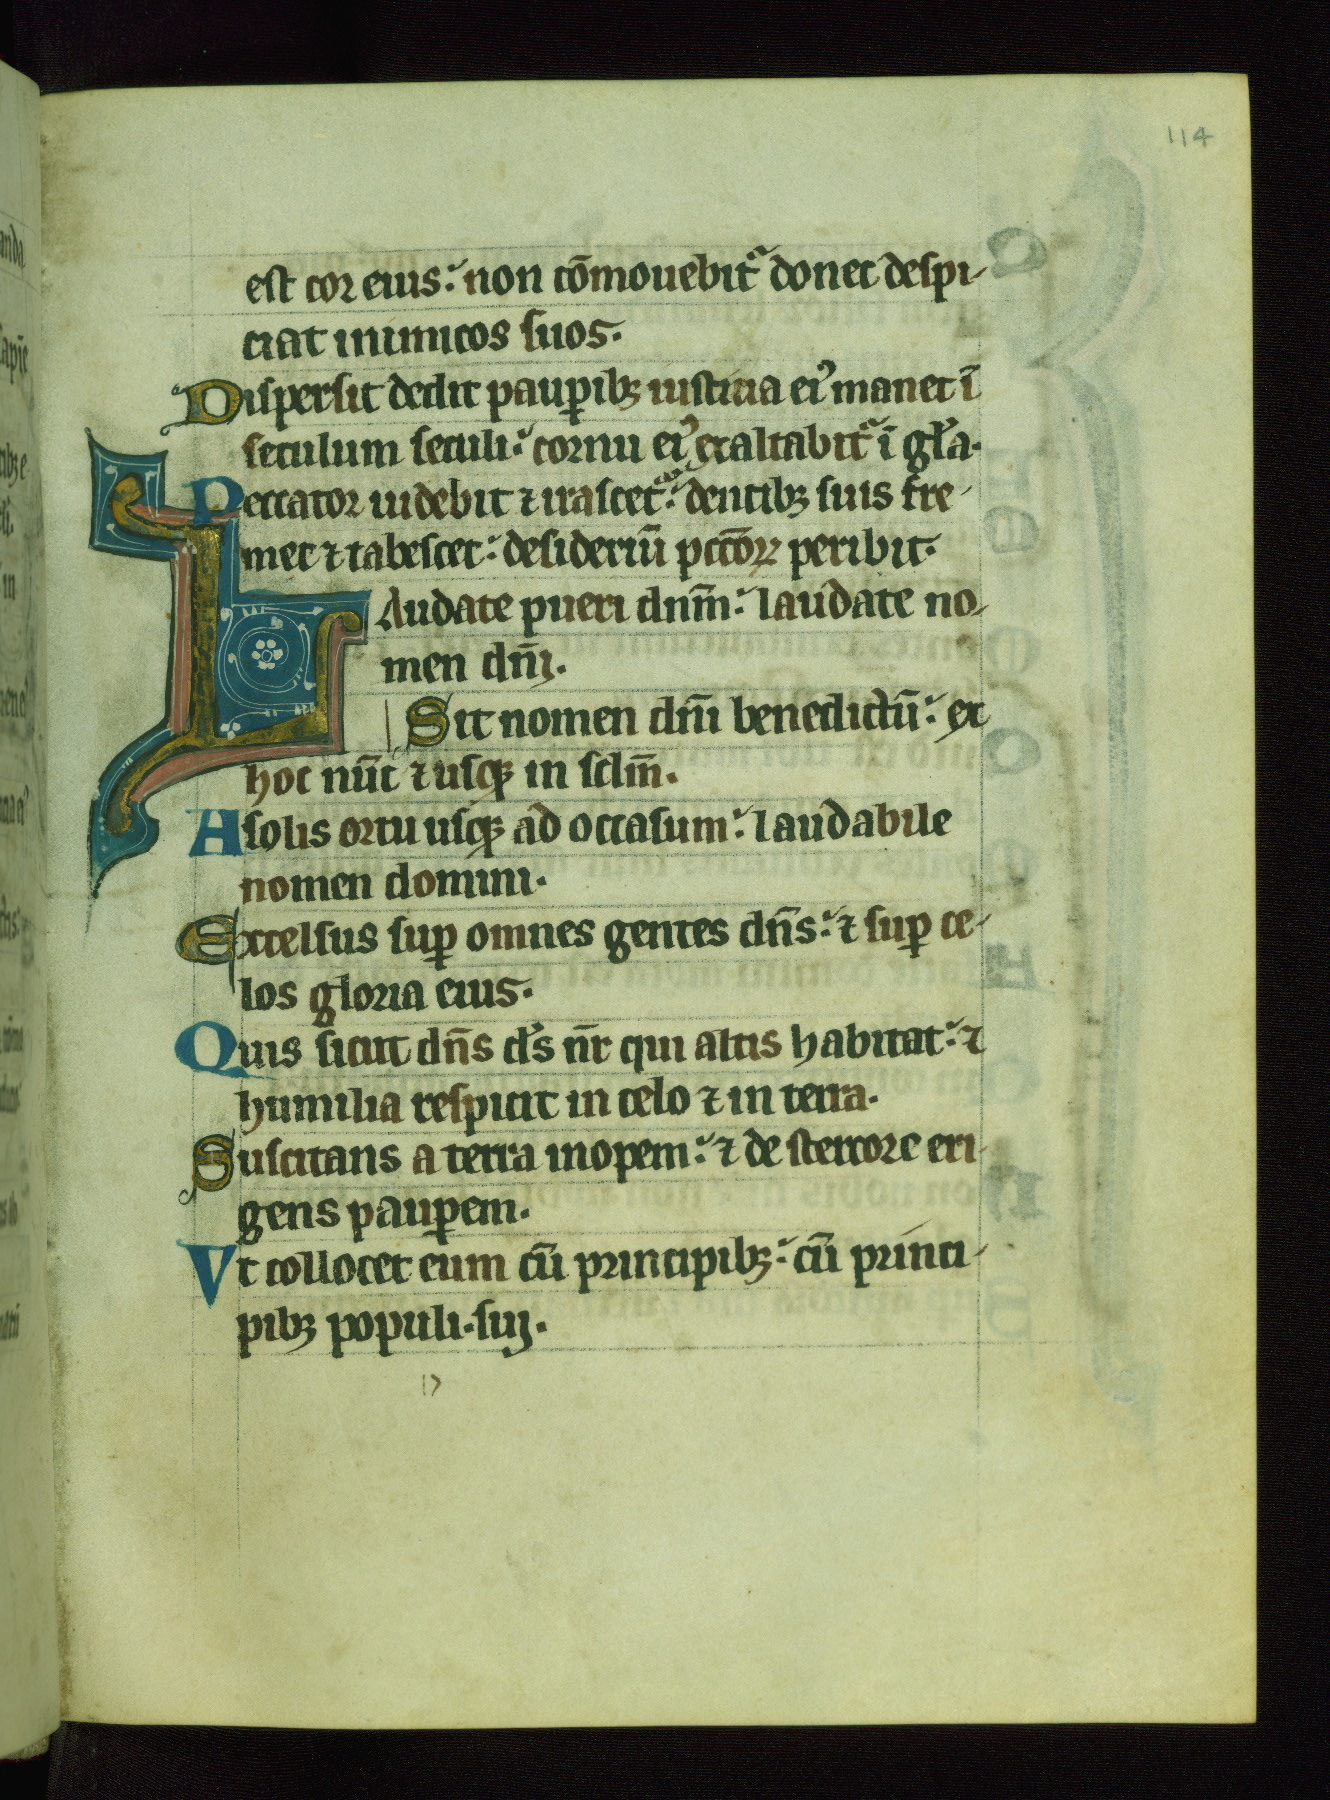 114
est cor eius: non cōmouebitᷓ donec despi-
ciat inimicos suos.
Dispersit dedit paup̲ibꝫ iusticia ei᾿ manet ī
seculum seculi: cornu ei᾿ exaltabitᷓ ī gl̄a.
Peccator uidebit ⁊ irascetᷓ: dentibꝫ suis fre-
met ⁊ tabescet: desideriū pccōꝝ peribit.
Laudate pueri dnm̄: laudate no-
men dn̄j.
Sit nomen dn̄i benedictū: ex
hoc nūc ⁊ usqꝫ in sclm̄.
A solis ortu usqꝫ ad occasum: laudabile
nomen domini.
Excelsus suꝑ omnes gentes dn̄s: ⁊ suꝑ ce-
los gloria eius.
Quis sicut dn̄s d̄s nr̄ qui altis habitat: ⁊
humilia respicit in celo ⁊ in terra.
Suscitans a terra inopem: ⁊ de stercore eri-
gens pauꝑem.
Vt collocet eum cū principibꝫ: cū princi-
pibꝫ populi suj.